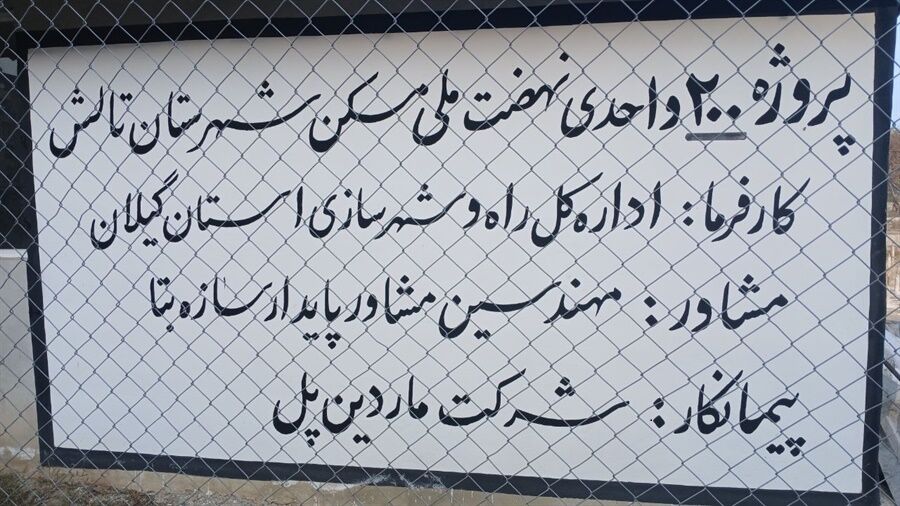 پروژه ۲۰۰ واحدی نهضت ملی مسکن شهرستان تالش
کارفرما: اداره کل راه و شهرسازی استان گیلان
مشاور: مهندسین مشاور پایدار سازه بتا
پیمانکار: شرکت ماردین پل